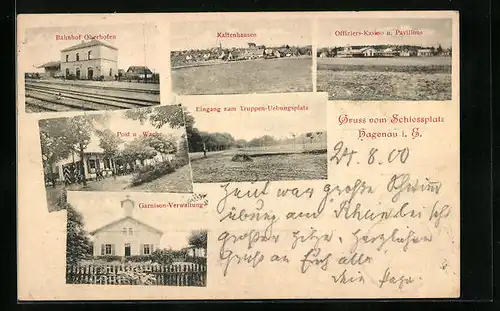 Bahnhof Oberhofen
Kaltenhausen
Offiziers-Kasino u. Pavillons
Eingang zum Truppen-Uebungsplatz
Gruss vom Schiessplatz
Hagenau i. E.
Post u. Wache
Garnison-Verwaltung
24.8.00
Heut war große
übung am bei
großer Hitze. Herzlichen
Gruß an Euch alle
Dein Papa.